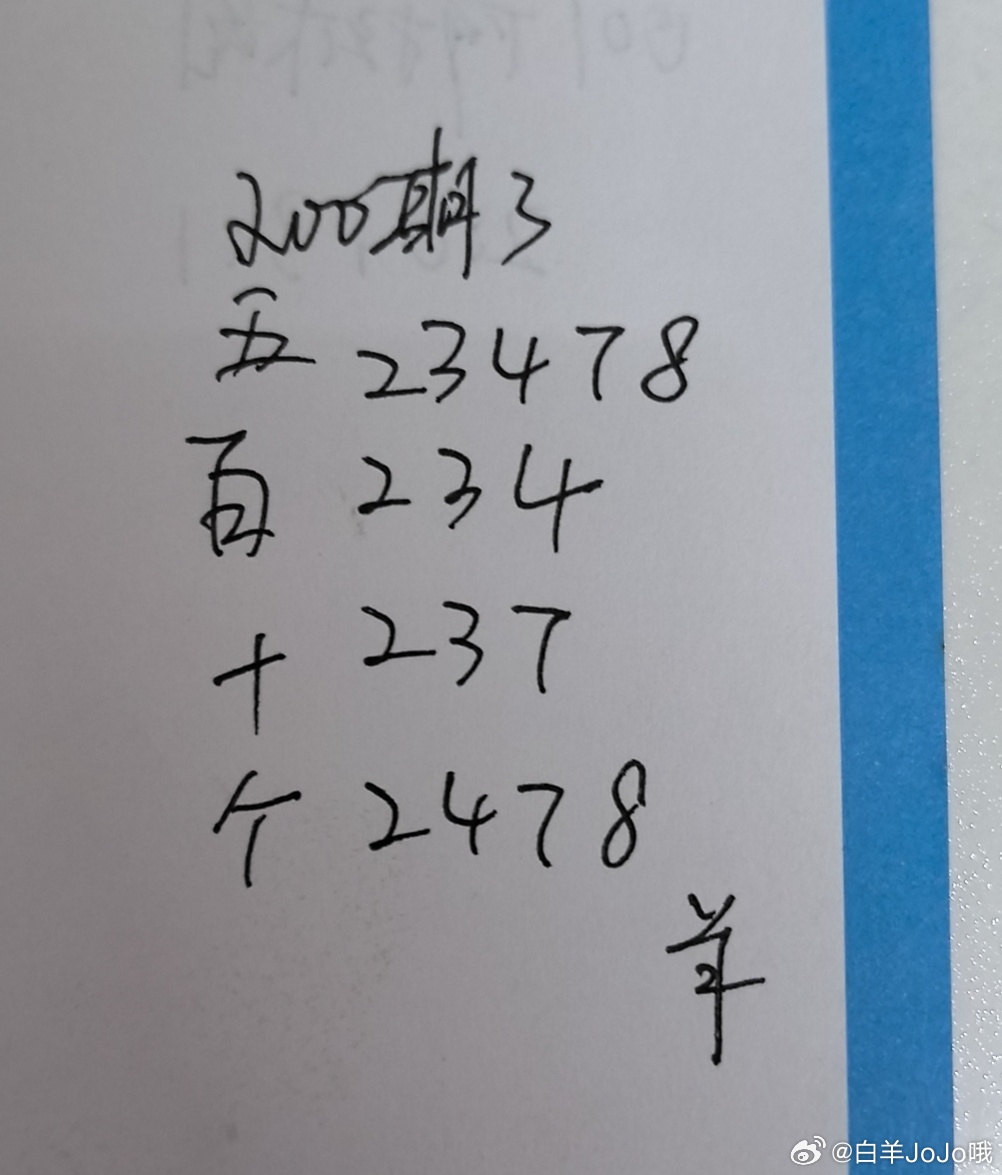 200期3
五 23478
百 234
十 237
个 2478
羊
@白羊JoJo哦